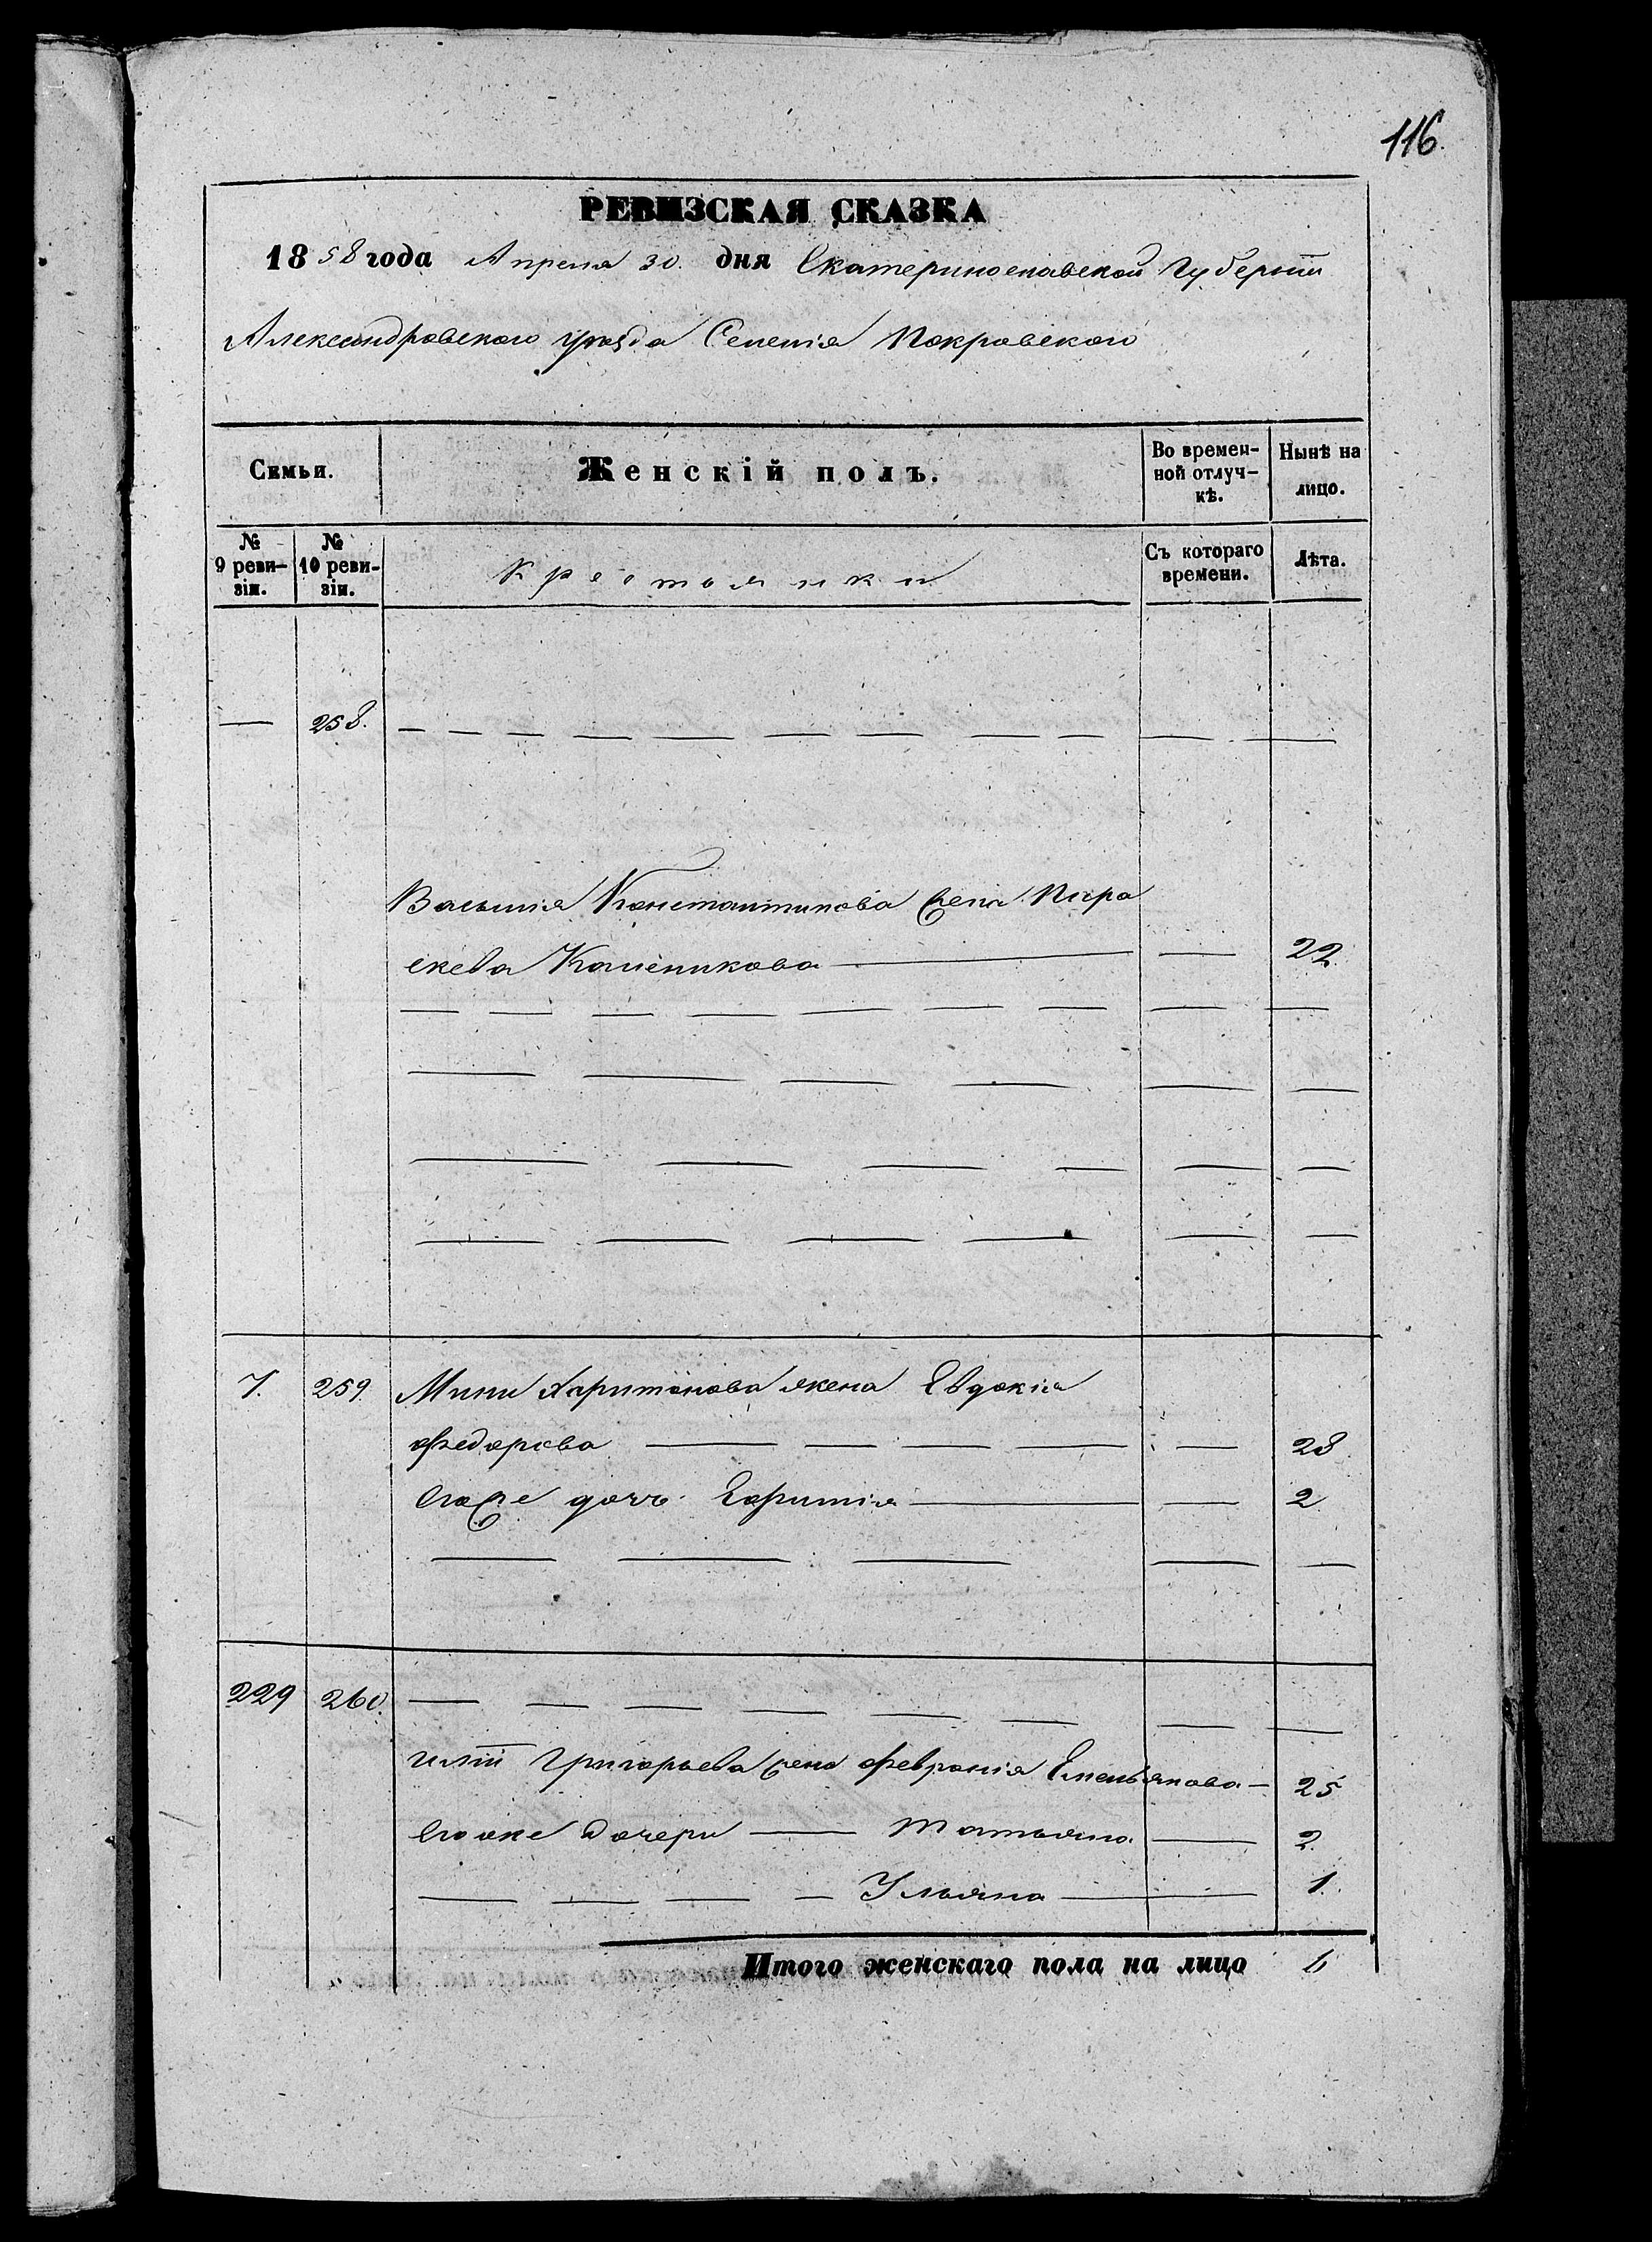 116.
РЕВИЗСКАЯ СКАЗКА
1858 года Апреля 30. дня Екатеринославской Губерніи
Александровского Уѣзда Селенія Покровского
Семьи. Женскій полъ. Во времен- ной отлуч- кѣ. Нынѣ на лицо.
№ 9 реви- зіи. № 10 реви- зіи. Крестьянки Съ котораго времени. Лѣта.
— 258. — — — — — — — — — — —
Василія Константинова жена Пара
скева Каленикова — — 22.
— — — — — — — — — —
— — — — — —
— — — — — —
— — — — — —
7. 259. Мины Харитонова жена Евдокія
Федорова — — — — — 28.
Егоже дочь Евфимія — — 2.
— — — — —
229 260. — — — — — — — —
Григорьева жена Февронія Емельянова — 25
Егоже дочери — Татьяна — 2.
— — — — Ульяна — 1.
Итого женскаго пола на лицо 6